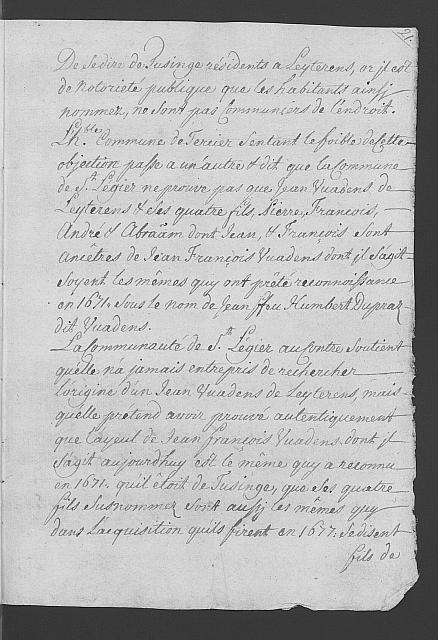 21.
De se dire de Pusinge résidents a Leyterens, or jl est
de notorieté publique que les habitants ainsj
nommez, ne sont pas Communiers de l'endroit.
L'h.ble Commune de Tercier sentant le foible de cette
objection passe a un'autre & dit que la Commune
de S.t Legier ne prouve pas que Jean Vuadens de
Leyterens & ses quatre fils, Pierre, François,
André & Abraâm dont Jean, & François sont
Ancêtres de Jean François Vuadens dont jl s'agit
soyent les mêmes quy ont prêté reconnoissance
en 1671. sous le nom de Jean ffeu Humbert Dupraz
dit Vuadens.
La Communauté de S.t Légier au contre soutient
quelle n'a jamais entrepris de rechercher
l'origine d'un Jean Vuadens de Leyterens, mais
quelle pretend avoir prouvé autentiquement
que l'ayeul de Jean François Vuadens dont jl
s'agit aujourdhuy est le même quy a reconnu
en 1671. quil étoit de Pusinge, que ses quatre
fils susnommez sont aussj les mêmes quy
dans l'acquisition quils firent en 1677. se disent
fils de